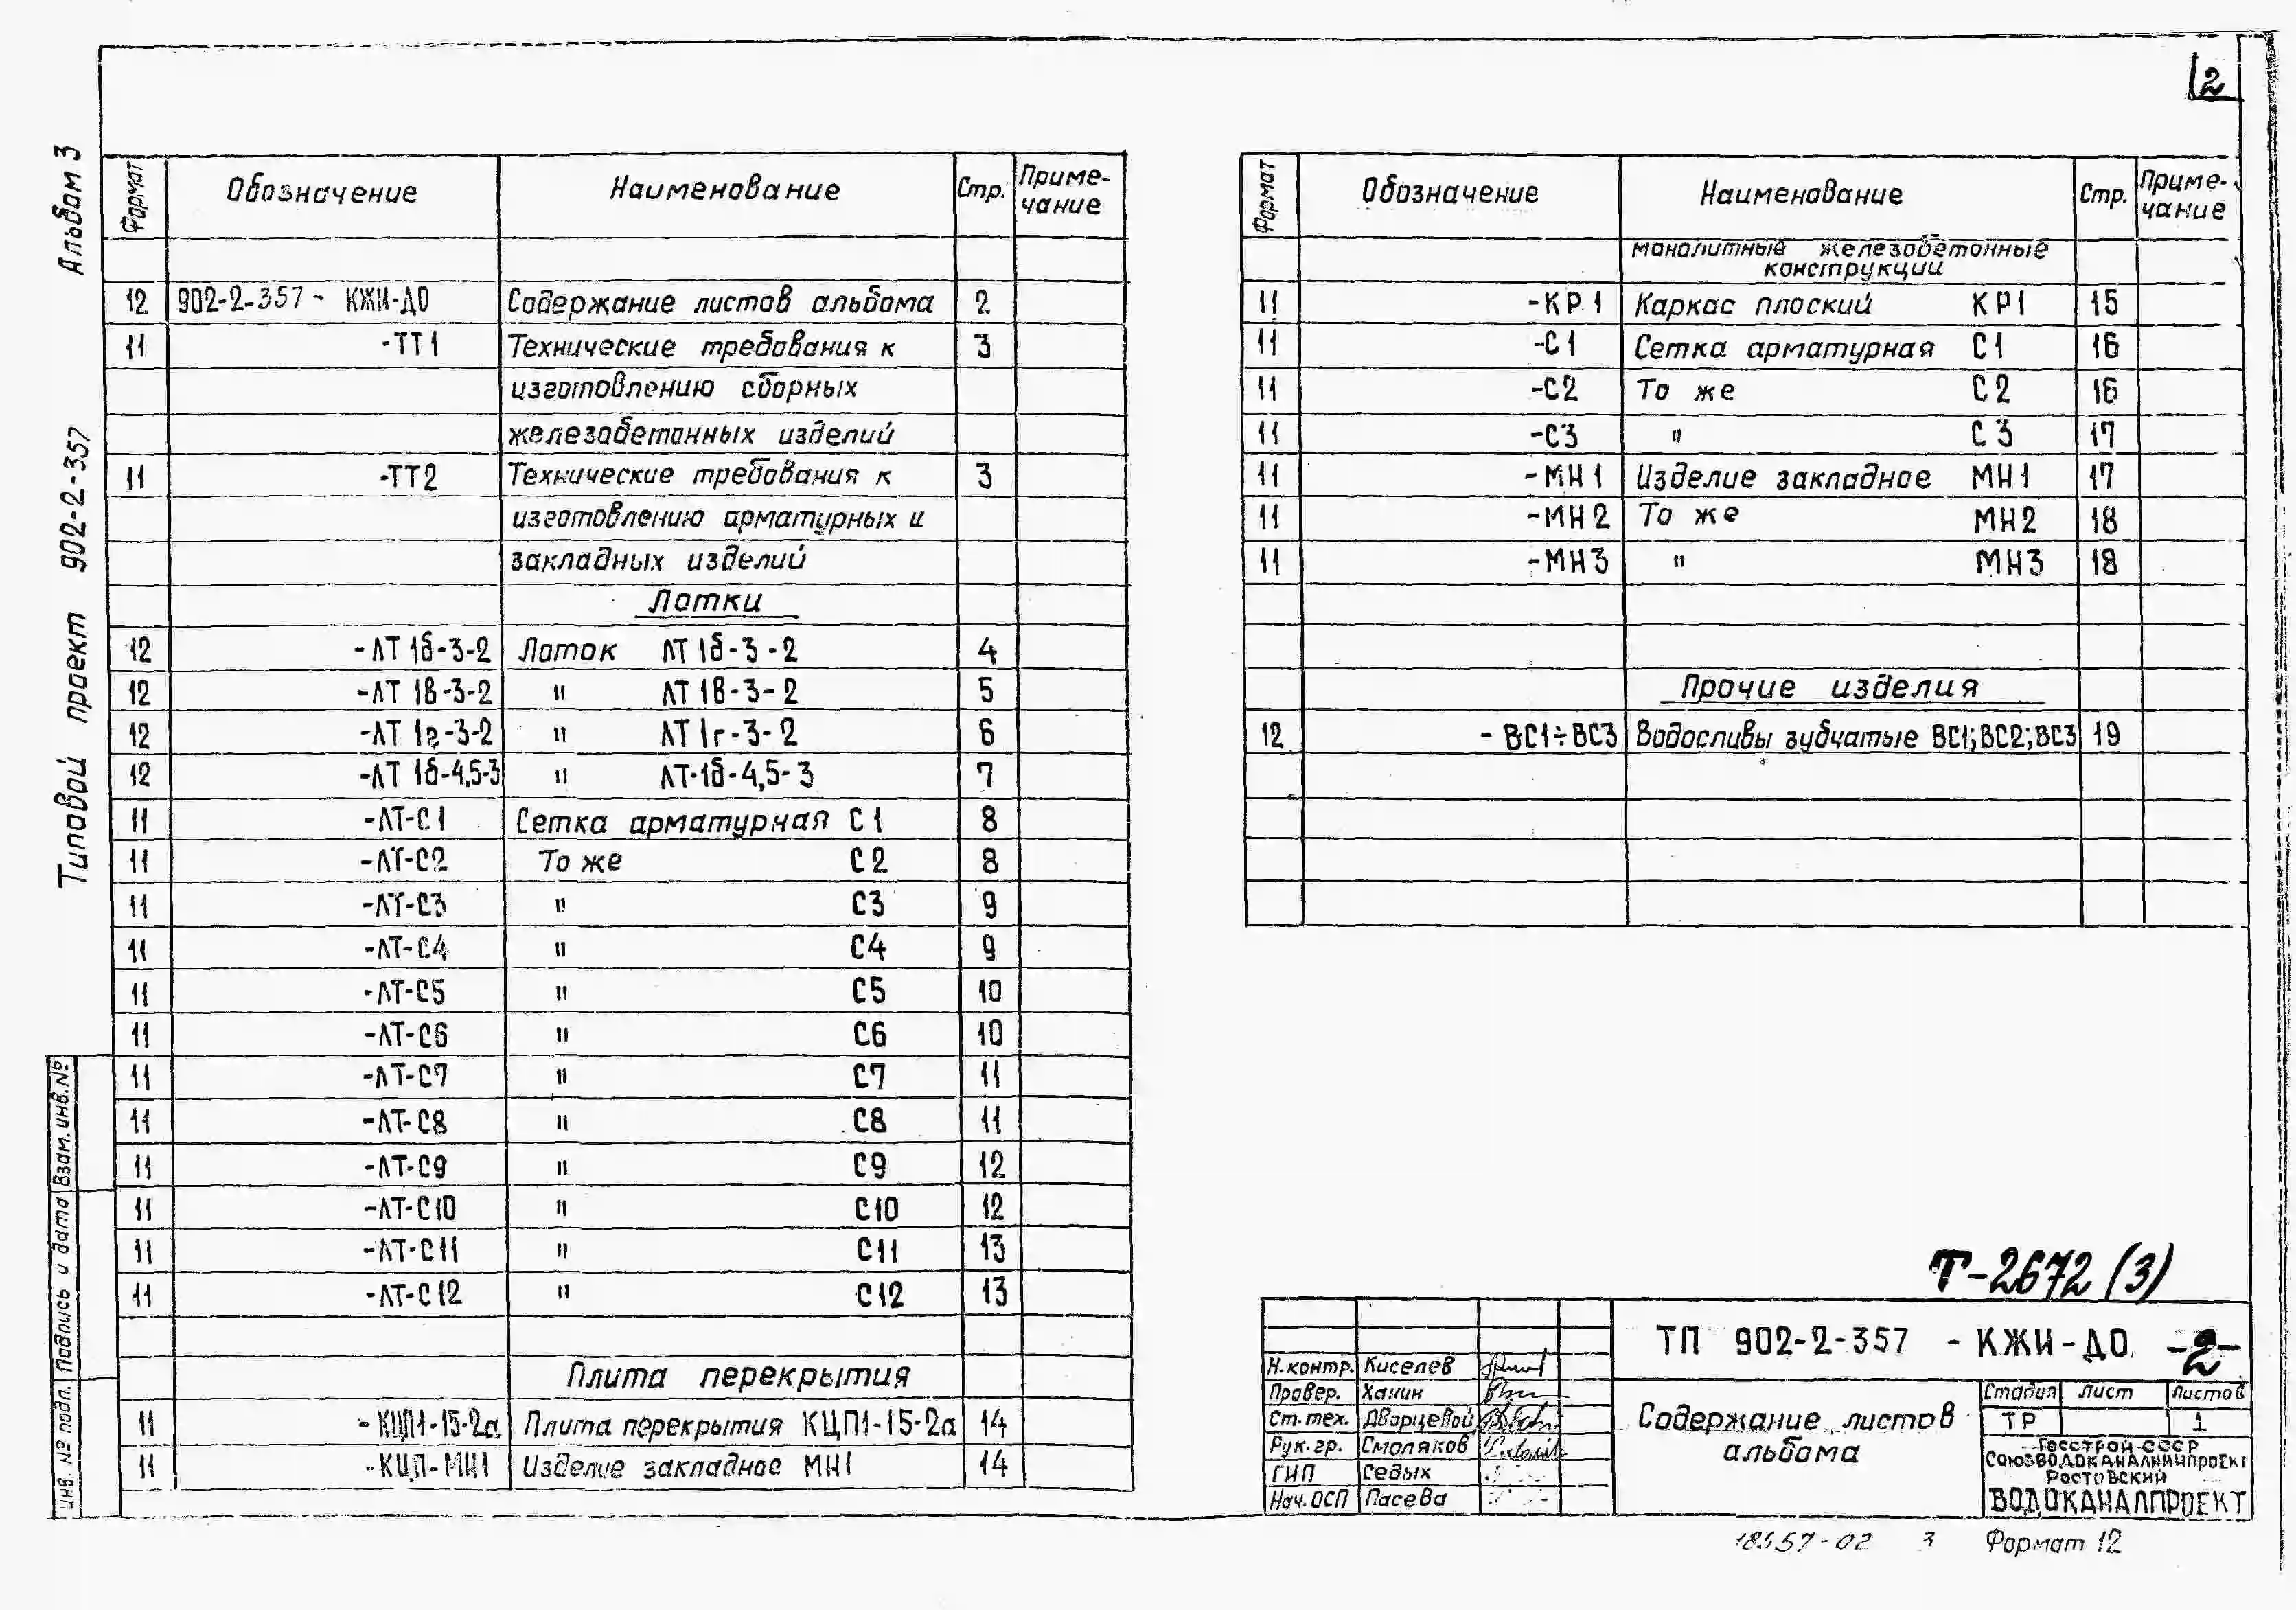 2
Альбом 3
Типовой проект 902-2-357
Взам. инв. №
Подпись и дата
инв. № подл.
Формат Обозначение Наименование Стр. Приме-
чание
12 902-2-357- КЖИ-ДО Содержание листов альбома 2
11 -ТТ1 Технические требования к 3
изготовлению сборных
железобетонных изделий
11 -ТТ2 Технические требования к 3
изготовлению арматурных и
закладных изделий
Лотки
12 -ЛТ 1б-3-2 Лоток ЛТ 1б-3-2 4
12 -ЛТ 1в-3-2 " ЛТ 1в-3-2 5
12 -ЛТ 1г-3-2 " ЛТ 1г-3-2 6
12 -ЛТ 1б-4,5-3 " ЛТ-1б-4,5-3 7
11 -ЛТ-С1 Сетка арматурная С1 8
11 -ЛТ-С2 То же С2 8
11 -ЛТ-С3 " С3 9
11 -ЛТ-С4 " С4 9
11 -ЛТ-С5 " С5 10
11 -ЛТ-С6 " С6 10
11 -ЛТ-С7 " С7 11
11 -ЛТ-С8 " С8 11
11 -ЛТ-С9 " С9 12
11 -ЛТ-С10 " С10 12
11 -ЛТ-С11 " С11 13
11 -ЛТ-С12 " С12 13
Плита перекрытия
11 -КЦП1-15-2а Плита перекрытия КЦП1-15-2а 14
11 -КЦП-МН1 Изделие закладное МН1 14
Формат Обозначение Наименование Стр. Приме-
чание
монолитные железобетонные
конструкции
11 -КР1 Каркас плоский КР1 15
11 -С1 Сетка арматурная С1 16
11 -С2 То же С2 16
11 -С3 " С3 17
11 -МН1 Изделие закладное МН1 17
11 -МН2 То же МН2 18
11 -МН3 " МН3 18
Прочие изделия
12 -ВС1÷ВС3 Водосливы зубчатые ВС1;ВС2;ВС3 19
Т-2672 (3)
ТП 902-2-357 - КЖИ-ДО -2-
Н.контр. Киселев
Провер. Ханин
Ст.тех. Дворцевой
Рук.гр. Смоляков
ГИП Седых
Нач.ОСП Пасева
Содержание листов
альбома
Стадия Лист Листов
ТР 1
Госстрой СССР
Союзводоканалниипроект
Ростовский
ВОДОКАНАЛПРОЕКТ
18557-02 3 Формат 12